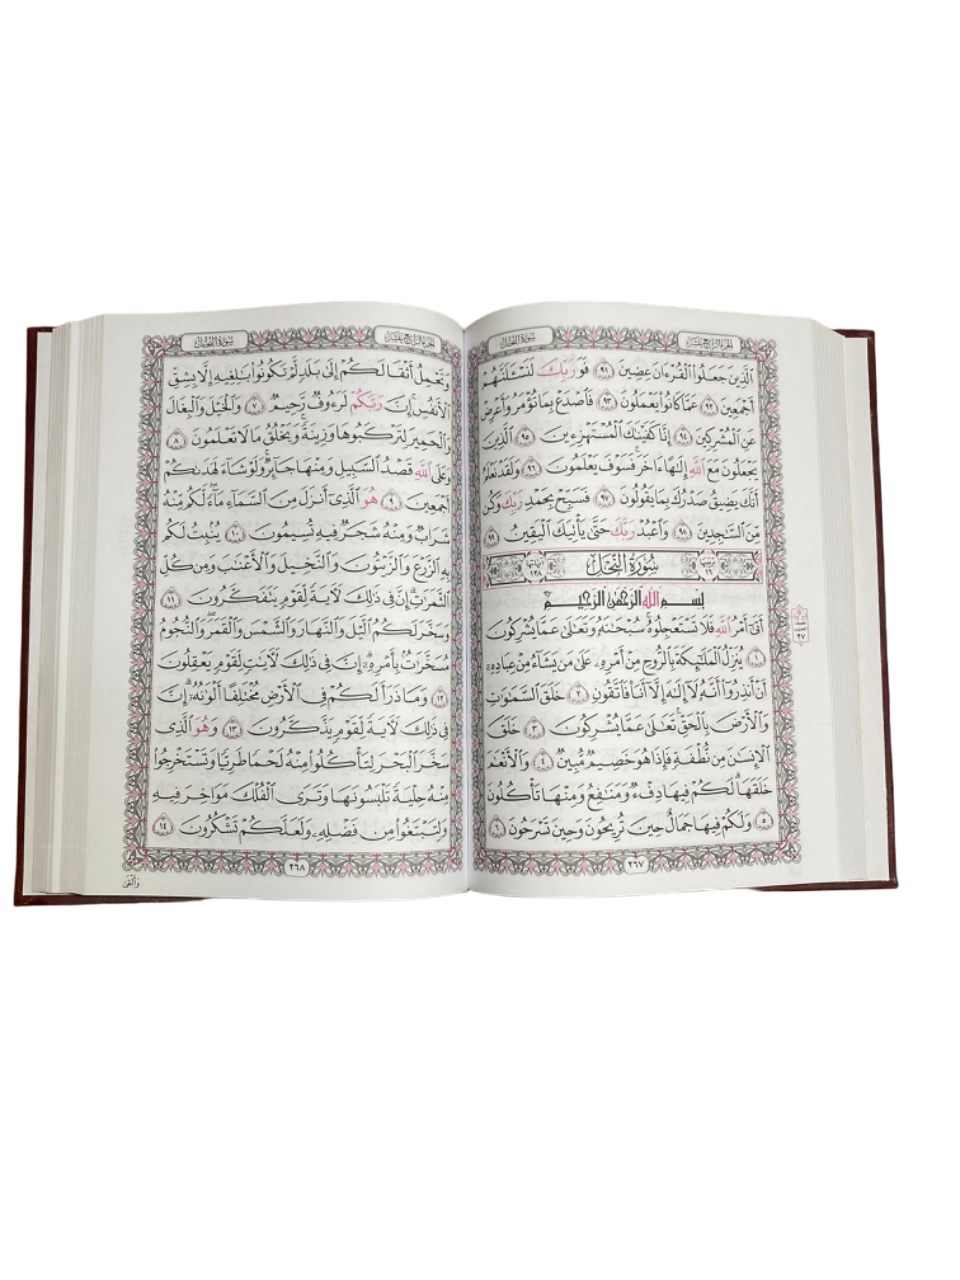 سورة النحل
الجزء الرابع عشر
الَّذِينَ جَعَلُوا الْقُرْءَانَ عِضِينَ ٩١ فَوَرَبِّكَ لَنَسْـَٔلَنَّهُمْ
أَجْمَعِينَ ٩٢ عَمَّا كَانُوا يَعْمَلُونَ ٩٣ فَاصْدَعْ بِمَا تُؤْمَرُ وَأَعْرِضْ
عَنِ الْمُشْرِكِينَ ٩٤ إِنَّا كَفَيْنَاكَ الْمُسْتَهْزِءِينَ ٩٥ الَّذِينَ
يَجْعَلُونَ مَعَ اللَّهِ إِلَٰهًا ءَاخَرَ فَسَوْفَ يَعْلَمُونَ ٩٦ وَلَقَدْ نَعْلَمُ
أَنَّكَ يَضِيقُ صَدْرُكَ بِمَا يَقُولُونَ ٩٧ فَسَبِّحْ بِحَمْدِ رَبِّكَ وَكُن
مِّنَ السَّاجِدِينَ ٩٨ وَاعْبُدْ رَبَّكَ حَتَّىٰ يَأْتِيَكَ الْيَقِينُ ٩٩
سُورَةُ النَّحْلِ
بِسْمِ اللَّهِ الرَّحْمَٰنِ الرَّحِيمِ
أَتَىٰ أَمْرُ اللَّهِ فَلَا تَسْتَعْجِلُوهُ سُبْحَانَهُ وَتَعَالَىٰ عَمَّا يُشْرِكُونَ
١ يُنَزِّلُ الْمَلَائِكَةَ بِالرُّوحِ مِنْ أَمْرِهِ عَلَىٰ مَن يَشَاءُ مِنْ عِبَادِهِ
أَنْ أَنذِرُوا أَنَّهُ لَا إِلَٰهَ إِلَّا أَنَا فَاتَّقُونِ ٢ خَلَقَ السَّمَاوَاتِ
وَالْأَرْضَ بِالْحَقِّ تَعَالَىٰ عَمَّا يُشْرِكُونَ ٣ خَلَقَ
الْإِنسَانَ مِن نُّطْفَةٍ فَإِذَا هُوَ خَصِيمٌ مُّبِينٌ ٤ وَالْأَنْعَامَ
خَلَقَهَا لَكُمْ فِيهَا دِفْءٌ وَمَنَافِعُ وَمِنْهَا تَأْكُلُونَ
٥ وَلَكُمْ فِيهَا جَمَالٌ حِينَ تُرِيحُونَ وَحِينَ تَسْرَحُونَ ٦
٢٦٧
الجزء الرابع عشر
سورة النحل
وَتَحْمِلُ أَثْقَالَكُمْ إِلَىٰ بَلَدٍ لَّمْ تَكُونُوا بَالِغِيهِ إِلَّا بِشِقِّ
الْأَنفُسِ إِنَّ رَبَّكُمْ لَرَءُوفٌ رَّحِيمٌ ٧ وَالْخَيْلَ وَالْبِغَالَ
وَالْحَمِيرَ لِتَرْكَبُوهَا وَزِينَةً وَيَخْلُقُ مَا لَا تَعْلَمُونَ ٨
وَعَلَى اللَّهِ قَصْدُ السَّبِيلِ وَمِنْهَا جَائِرٌ وَلَوْ شَاءَ لَهَدَاكُمْ
أَجْمَعِينَ ٩ هُوَ الَّذِي أَنزَلَ مِنَ السَّمَاءِ مَاءً لَّكُم مِّنْهُ
شَرَابٌ وَمِنْهُ شَجَرٌ فِيهِ تُسِيمُونَ ١٠ يُنبِتُ لَكُم
بِهِ الزَّرْعَ وَالزَّيْتُونَ وَالنَّخِيلَ وَالْأَعْنَابَ وَمِن كُلِّ
الثَّمَرَاتِ إِنَّ فِي ذَٰلِكَ لَآيَةً لِّقَوْمٍ يَتَفَكَّرُونَ ١١
وَسَخَّرَ لَكُمُ اللَّيْلَ وَالنَّهَارَ وَالشَّمْسَ وَالْقَمَرَ وَالنُّجُومُ
مُسَخَّرَاتٌ بِأَمْرِهِ إِنَّ فِي ذَٰلِكَ لَآيَاتٍ لِّقَوْمٍ يَعْقِلُونَ
١٢ وَمَا ذَرَأَ لَكُمْ فِي الْأَرْضِ مُخْتَلِفًا أَلْوَانُهُ إِنَّ
فِي ذَٰلِكَ لَآيَةً لِّقَوْمٍ يَذَّكَّرُونَ ١٣ وَهُوَ الَّذِي
سَخَّرَ الْبَحْرَ لِتَأْكُلُوا مِنْهُ لَحْمًا طَرِيًّا وَتَسْتَخْرِجُوا
مِنْهُ حِلْيَةً تَلْبَسُونَهَا وَتَرَى الْفُلْكَ مَوَاخِرَ فِيهِ
وَلِتَبْتَغُوا مِن فَضْلِهِ وَلَعَلَّكُمْ تَشْكُرُونَ ١٤
٢٦٨
وَأَلْقَىٰ